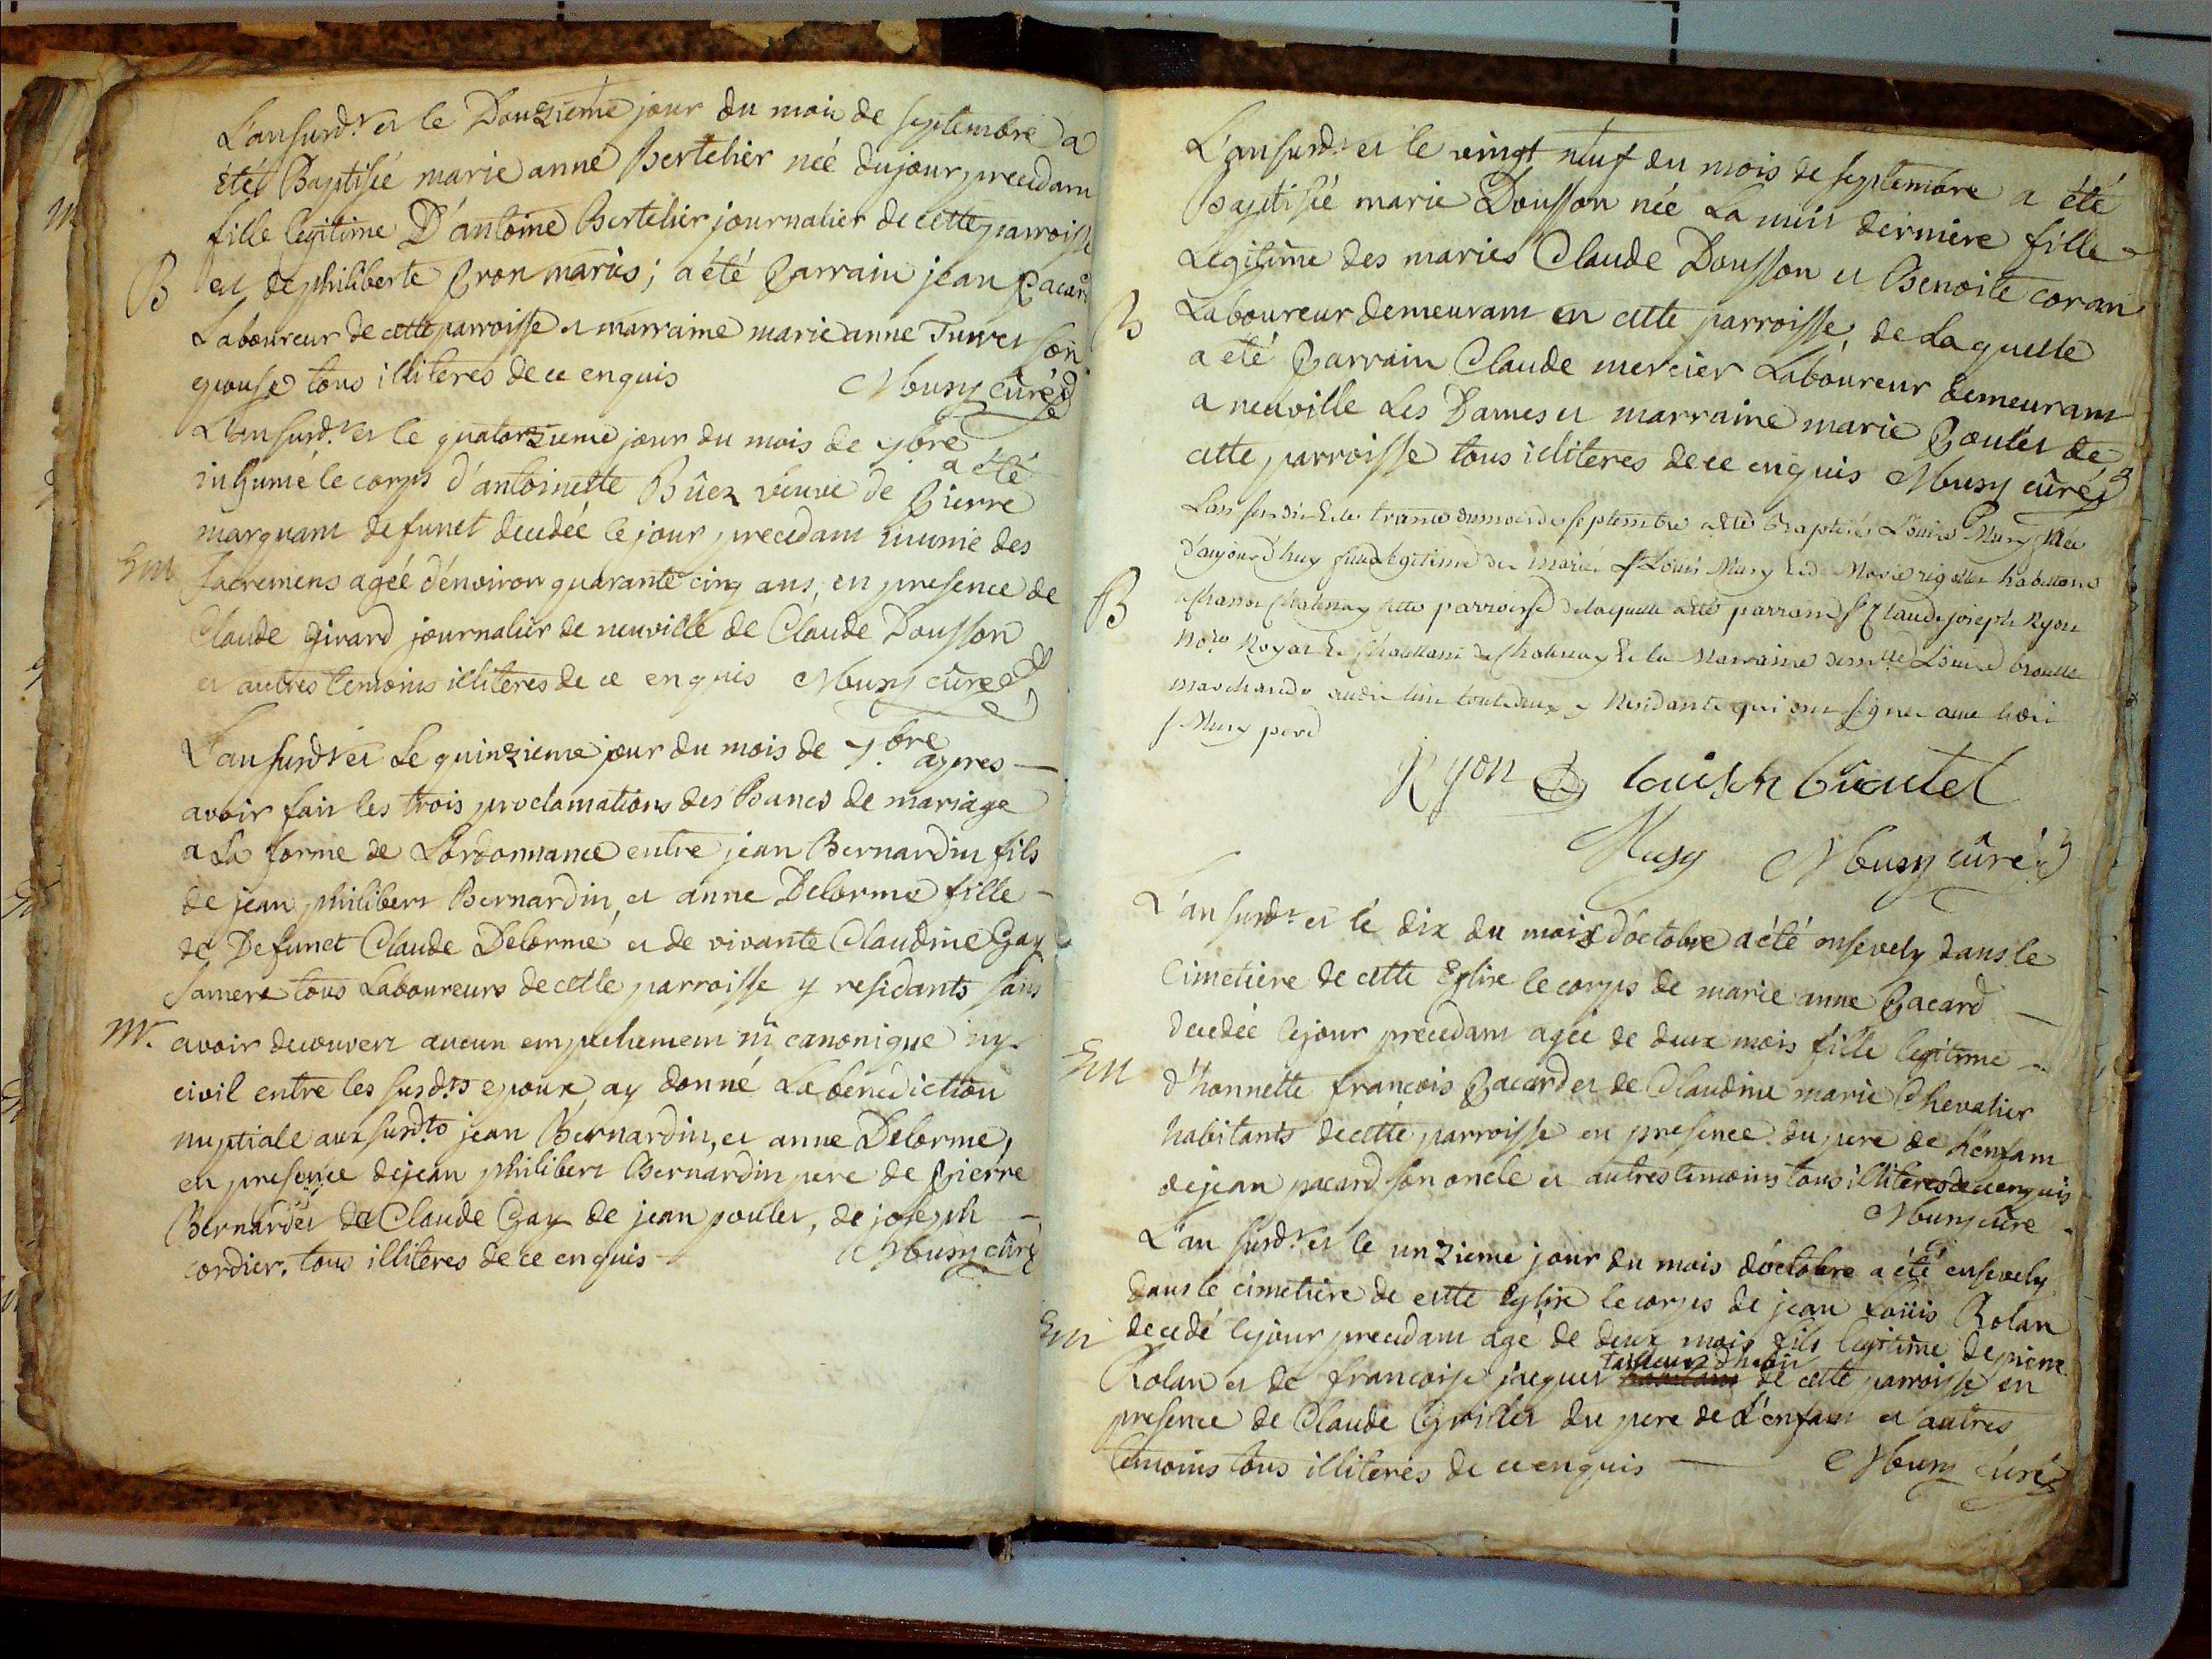 L'an susd.t et le Douzieme jour du mois de septembre a
été Baptisée marie anne Bertelier née du jour precedant
fille legitime D'antoine Bertelier journalier de cette parroisse
B et de philiberte Pron mariés; a été Parrain jean Pacard
Laboureur de cette parroisse et marraine marie anne son
epouse tous illiteres de ce enquis Mbusy curé
L'an susd.t et le quatorzieme jour du mois de 7bre
a été
inhumé le corps d'antoinette Bûez veuve de Pierre
marguant defunct decedée le jour precedant munie des
Em sacremens agée d'énviron quarante cinq ans, en presence de
Claude girard journalier de neuville de Claude Dousson
et autres temoins illiteres de ce enquis Mbusy curé
L'an susd.t et Le quinzieme jour du mois de 7.bre apres
avoir fait les trois proclamations des Bancs de mariage
a La forme de L'ordonnance entre jean Bernardin fils
de jean philibert Bernardin, et anne Delorme fille
de Defunct Claude Delorme et de vivante Claudine Gay
sa mere tous Laboureurs de cette parroisse y residants sans
M. avoir decouvert aucun empechement ni canonique ny
civil entre les susd.ts epoux ay donné La bénédiction
nuptiale aux susd.ts jean Bernardin, et anne Delorme,
en presence de jean philibert Bernardin pere de Pierre
Bernardet de Claude Gay de jean poulet, de joseph
cordier. tous illiteres de ce enquis Mbusy curé
L'an susd.t et le vingt neuf du mois de septembre a été
Baptisée marie Dousson née La nuit derniere fille
Legitime des mariés Claude Dousson et Benoite coran
B Laboureur demeurant en cette parroisse, de Laquelle
a été Parrain Claude mercier Laboureur demeurant
a neuville Les Dames et marraine marie Poulet de
cette parroisse tous illiteres de ce enquis Mbusy curé
L'an susdit et le trante du mois de septembre a été Baptisé Louise Musy née
d'aujourd'huy fille legitime des mariés s.r Louis Musy et d. Marie rigollet habittans
B a Chatenay cette parroisse de laquelle a été parrain s.r Claude joseph Ryon
no.re Royal et Chatellain de Chatenay et la Marraine dem.lle Louise broutel
marchande audit lieu tout deux y Residants qui ont signé avec ledit
s Musy pere
Ryon Louise broutel
Musy Mbusy curé
L'an susd.t et le dix du mois d'octobre a été ensevely dans le
Cimetiere de cette Eglise le corps de marie anne Pacard
decedée le jour precedant agée de deux mois fille legitime
Em d'honnette françois Pacard et de Claudine marie Chevalier
habitants de cette parroisse en presence du pere de L'enfant
de jean pacard son oncle et autres temoins tous illiteres de ce enquis
Mbusy curé
L'an susd.t et le unzieme jour du mois d'octobre a été ensevely
dans le cimetiere de cette Eglise le corps de jean Loüis Rolan
Em decedé le jour precedant agé de deux mois fils legitime de pierre
tailleur d'habit
Rolan et de francoise jacquet de cette parroisse en
presence de Claude du pere de L'enfant et autres
temoins tous illiteres de ce enquis Mbusy curé